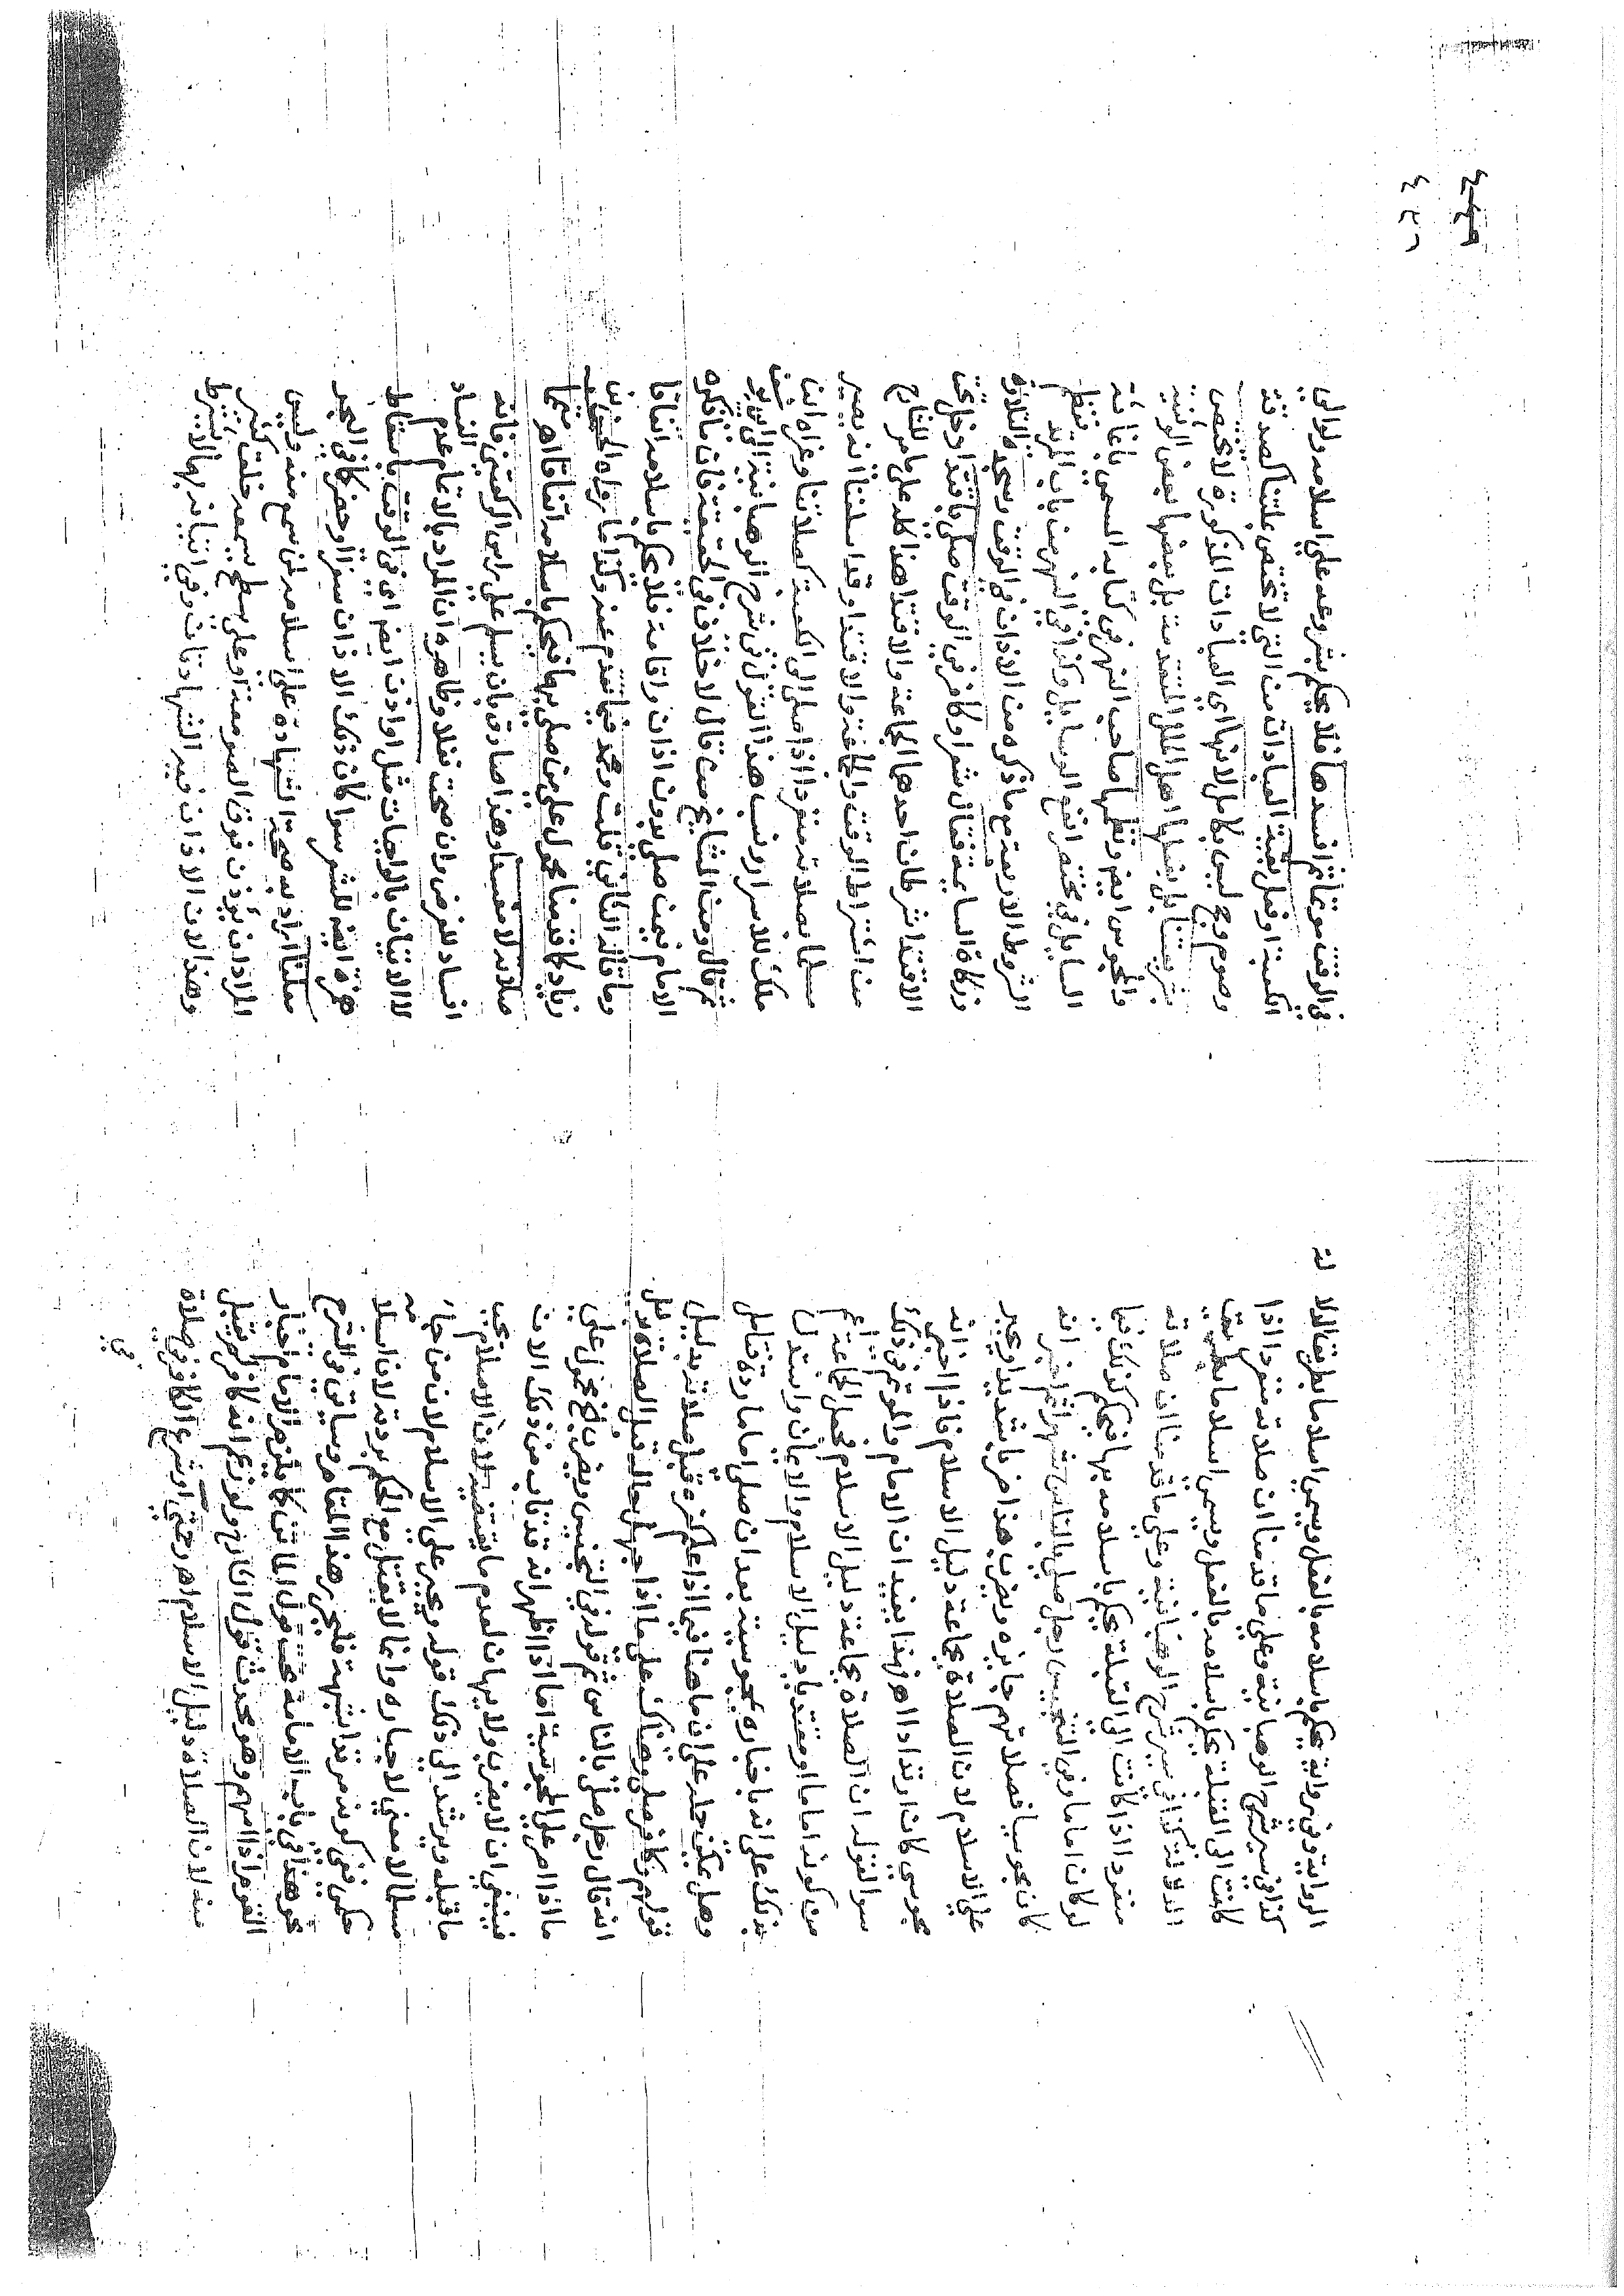 الرواية وفي رواية يحكم باسلامه بالفعل ويسمى اسلاما بطريق الدلالة
كذا في سير شرح الوهبانية وعلى ما قدمنا ان صلاته منفردا اذا
كانت الى القبلة يحكم باسلامه بالفعل ويسمى اسلاما بطريق
الدلالة كذا في سير شرح الوهبانية وعلى ما قدمنا ان صلاته
منفردا اذا كانت الى القبلة يحكم باسلامه بها فيحكم كذلك فيما
لو كان اماما وفي التجنيس رجل صلى بالناس شهرا ثم اخبر انه
كان مجوسيا فصلاتهم جايزة ويضرب هذا ضربا شديدا ويجبر
على الاسلام لان الصلاة بجماعة دليل الاسلام فاذا اخبر انه
مجوسي كان ارتدادا اهـ فهذا يفيد ان الامام والموتم في ذلك
سوا لقوله ان الصلاة بجماعة دليل الاسلام فجعل الجماعة اعم
من كونه اماما او مقتديا دليل الاسلام والايمان واستدل
بذلك على انه باخباره بمجوسيته بعد ان صلى اماما ردة فتامل
وهل يمكن حمله على ان ما هنا فيما اذا علم كفره قبل صلاته بدليل
قولهم وكافر صلى وهناك على ما اذا جهل حاله قبل الصلاة بدليل
انه قال رجل صلى بالناس ثم قوله في التجنيس ويضرب الخ محمول على
ما اذا اصر على المجوسية اما اذا اظهر انه قد تاب من ذلك الان
فينبغي ان لا يضرب ولا يهان لعدم ما يقتضيه لان الاسلام يجب
ما قبله ويرشد الى ذلك قوله ويجبر على الاسلام لان من جا
مسلما لا معنى لاجباره وانما لا يقتل مع الحكم بردته لان اسلامه
حكمي ففي كونه مرتدا شبهة فليحرر هذا المقام وسياتي في الشرح
نحو هذا في باب الامامة تحت قول الماتن كما يلزم الامام اخبار
القوم اذا امهم وهو محدث قول الشارح ولو زعم انه كافر لم يقبل
منه لان الصلاة دليل الاسلام اهـ وتحتي او شرع الكافر في صلاة
في
في الوقت موتما ثم افسدها فلا يحكم بشروعه على اسلامه ولو اتى
الكعبة او فعل بقية العبادات من التي لا تختص بملتنا كصدقة
وصوم وحج ليس بكامل لانها اي العبادات المذكورة لا تختص
بشريعتنا بل يفعلها اهل الملل المتقدمة بل بعضها بعض الوثنية
والمجوس ايضا ونظمها صاحب النهر في كتابه المسمى باغاثة
السايل في مختصر انفع الوسايل وكذا في النهر من باب المرتد فنظم
الشروط الاربعة مع ما ذكره من الاذان في الوقت وسجدة التلاوة
وزكاة السايمة فقال شعرا وكافر في الوقت صلى باقتدا وخل تحت
الاقتدا شرطان احدهما الجماعة والاقتدا هذا كله على ما مر للشارح
من اشتراط الوقت والجماعة والاقتدا وقد اسلفنا انه يصير
مسلما بصلاته منفردا اذا صلى الى الكعبة كصلاتنا وعزاه ابن
ملك للاسرار ونسب هذا القول في شرح الوهبانية الى ابي يوسف
ثم قال ومن المشايخ من قال لا خلاف في الحقيقة فان ما ذكره
الامام فيمن صلى بدون اذان واقامة فلا يحكم باسلامه اتفاقا
وما قاله الثاني قلت ومحمد فيما تقدم عنه وكذا ما رواه الحسن بن
زياد كما قدمنا محمول على من صلى بهما فيحكم باسلامه اتفاقا اهـ متمما
صلاته لا مفسدا وهذا صادق بان يسلم على راس الركعتين فانه
افساد للفرض وان صحت نفلا وظاهره ان المراد بالاتمام عدم الفساد
لا الاتيان بالواجبات مثلا او اذن ايضا اي في الوقت باسقاط
همزة ايضا للشعر سوا كان ذلك الاذان سفرا او حضرا كما في البحر
معلنا اراد به صحة الشهادة على اسلامه لمن سمع منه وليس
المراد ان يؤذن فوق الصومعة او على سطح يسمعه خلق كثير
وهذا لان الاذان فيه الشهادتان وفي اتيانه بهما لا يشترط